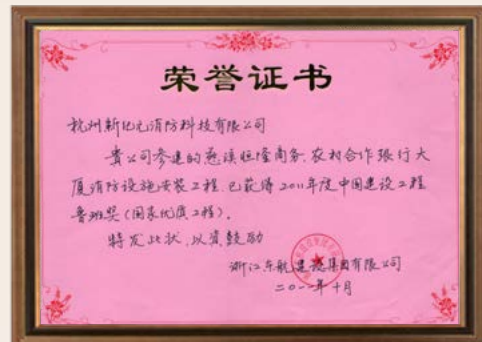 荣誉证书
杭州新纪元消防科技有限公司
贵公司参建的慈溪恒隆商务、农村合作银行大
厦消防设施安装工程,已获得2011年度中国建设工程
鲁班奖(国家优质工程)。
特发此状,以资鼓励
浙江东航建设集团有限公司
二〇一一年十月